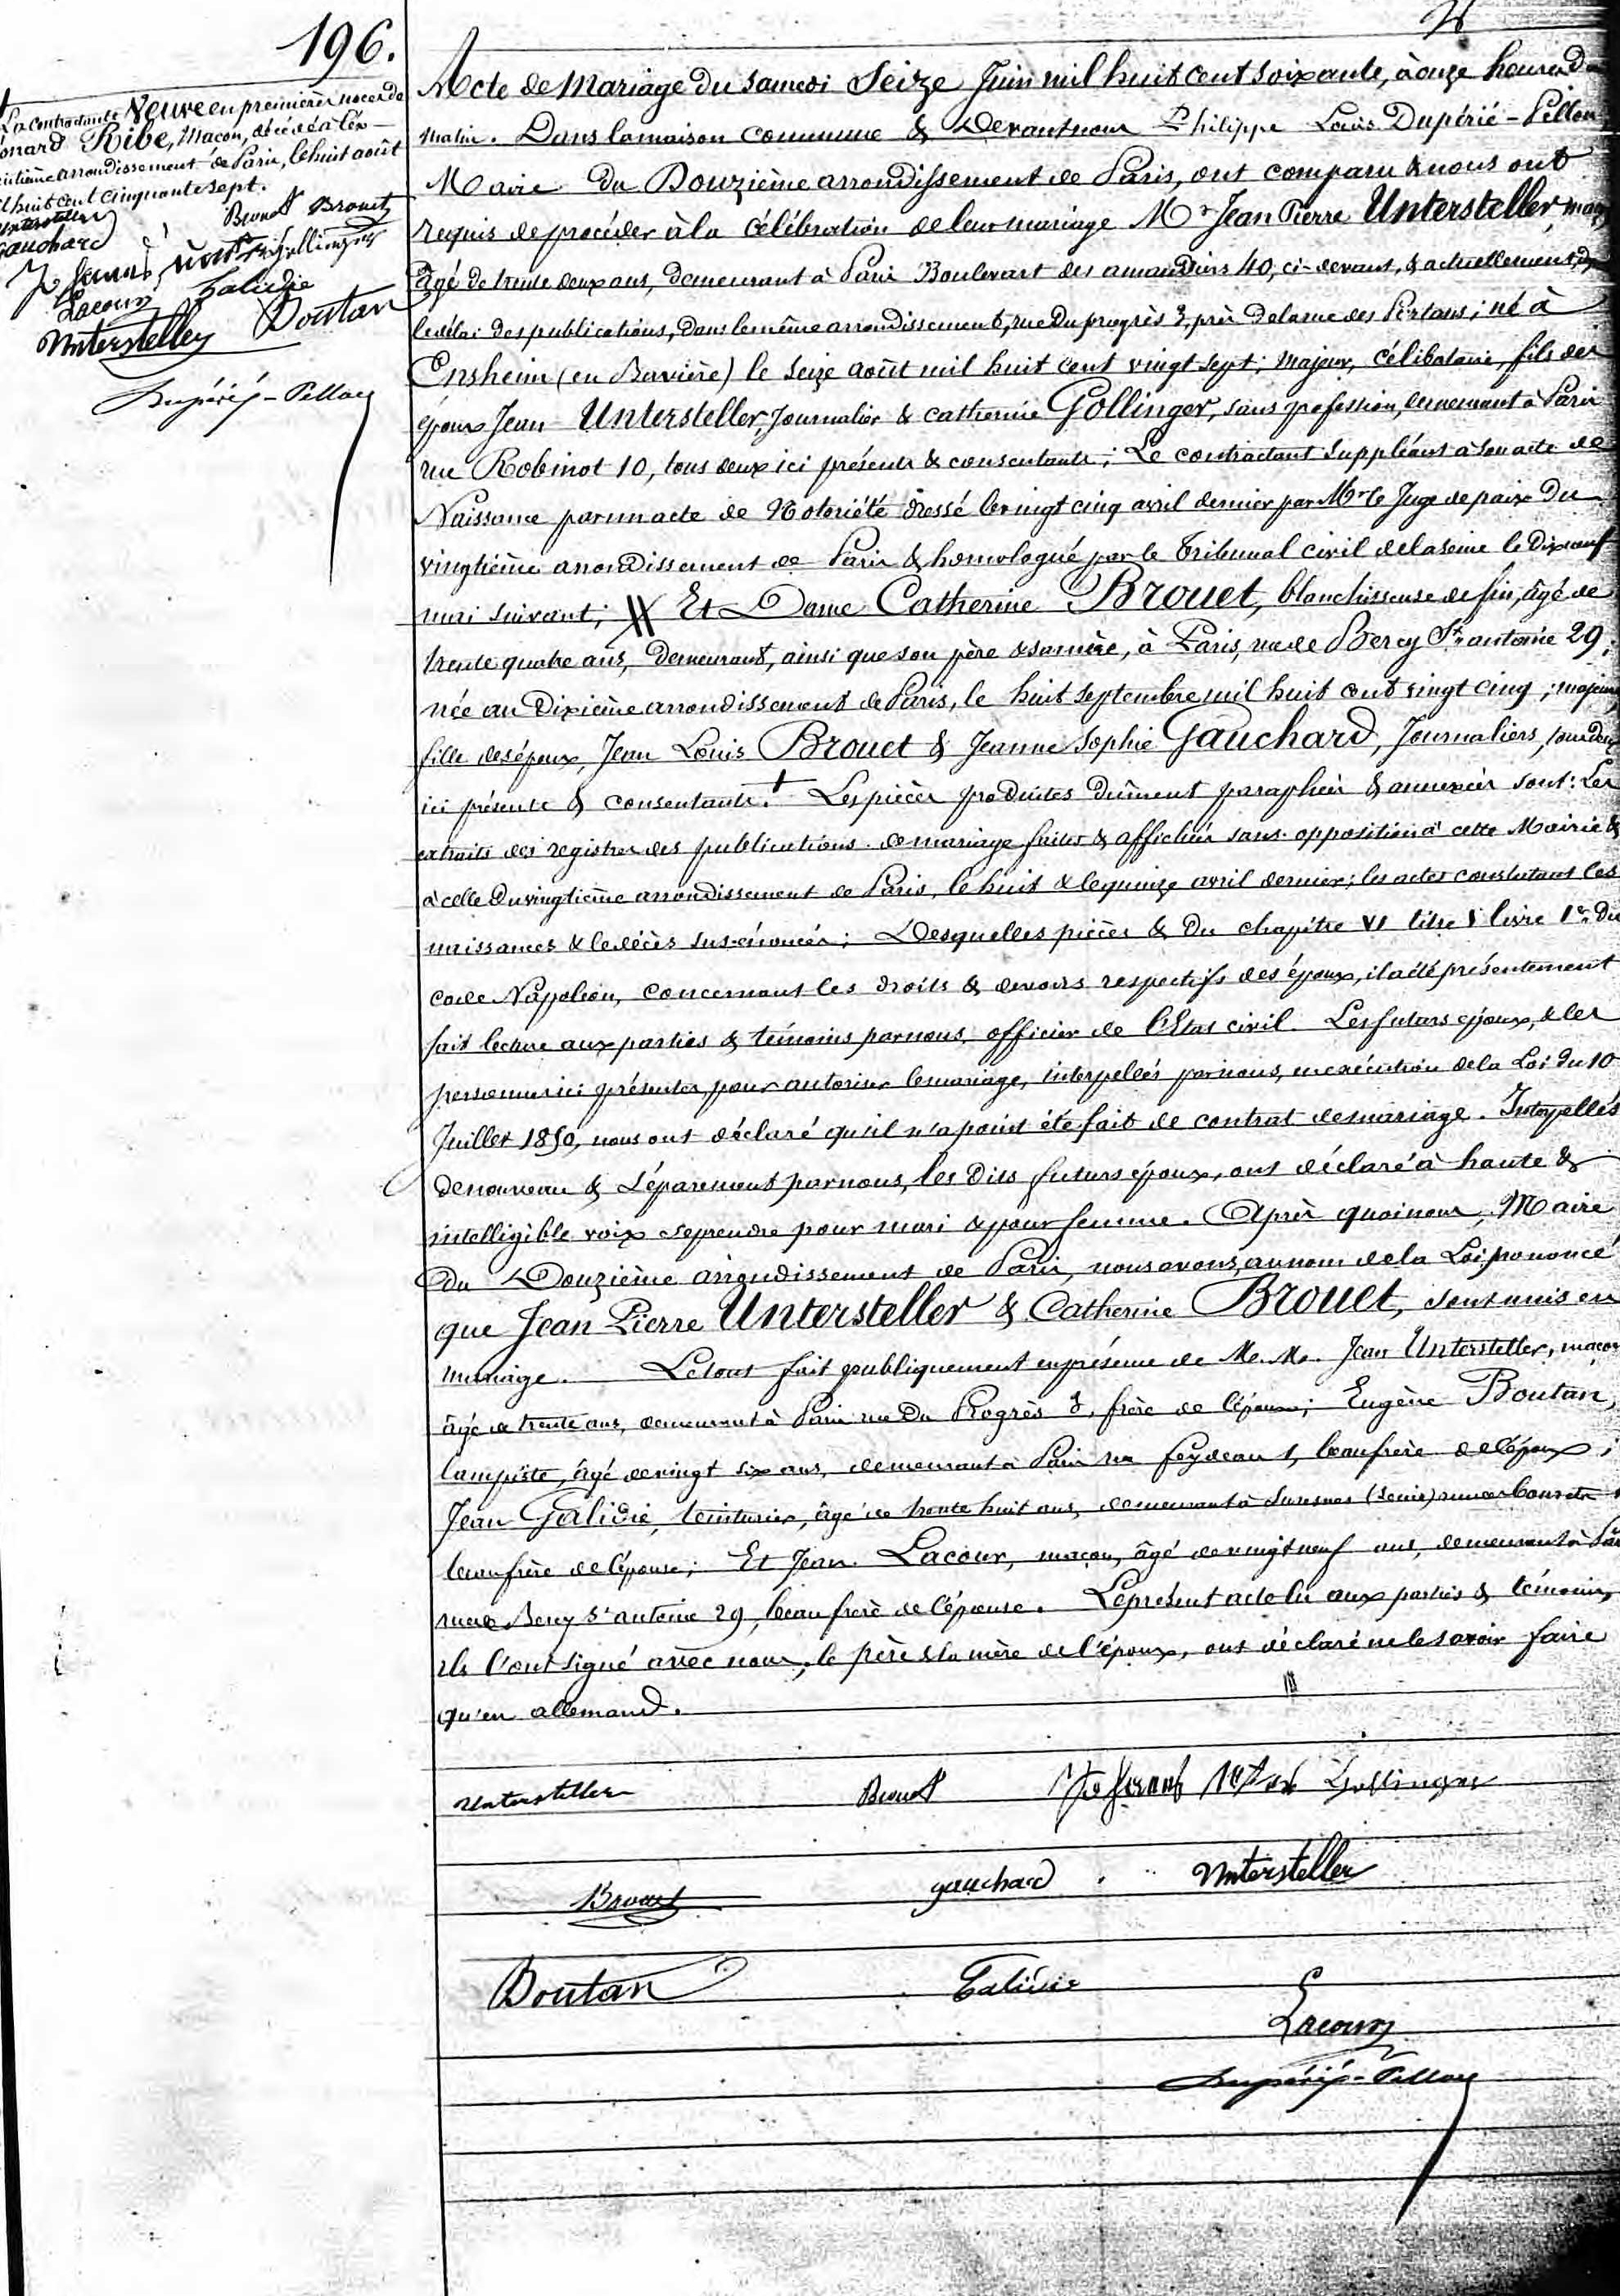 196.
La contractante Veuve en premières noces de
onard Ribe, Maçon, décédé à l'ex-
uitième arrondissement de Paris, le huit août
l huit cent cinquante sept.
Untersteller Brouet Brouet
Gauchard
Lacour Galidie
Untersteller Boutan
Dupérié-Pellou
Acte de Mariage du Samedi Seize Juin mil huit cent soixante, à onze heures du
matin. Dans la maison commune & Devant nous Philippe Louis Dupérié-Pellou
Maire du Douzième arrondissement de Paris, ont comparu & nous ont
requis de procéder à la célébration de leur mariage Mr Jean Pierre Untersteller,
âgé de trente deux ans, demeurant à Paris Boulevart des amandiers 40, ci-devant, & actuellement,
le délai des publications, dans le même arrondissement, rue du progrès 3, près de la rue des ; né à
Ensheim (en Bavière) le seize août mil huit cent vingt sept; majeur, célibataire, fils des
époux Jean Untersteller, Journalier & catherine Gollinger, sans profession, demeurant à Paris
rue Robinot 10, tous deux ici présents & consentants; Le contractant suppléant à son acte de
Naissance par un acte de Notoriété dressé le vingt cinq avril dernier par Mr le Juge de paix du
vingtième arrondissement de Paris & homologué par le Tribunal civil de la Seine le Dix neuf
mai suivant; Et Dame Catherine Brouet, blanchisseuse de fin, âgé de
trente quatre ans, demeurant, ainsi que son père & sa mère, à Paris, rue de Bercy St antoine 29,
née au Dixième arrondissement de Paris, le huit Septembre mil huit cent vingt cinq; majeure,
fille des époux, Jean Louis Brouet & Jeanne Sophie Gauchard, Journaliers, tous deux
ici présents & consentants. + Les pièces produites dûment paraphées & annexées sont: Les
extraits des registres des publications de mariage faites & affichées sans opposition à cette Mairie &
à celle du vingtième arrondissement de Paris, le huit & le quinze avril dernier; les actes constatant les
naissances & le décès sus-énoncés; Desquelles pièces & du chapitre VI titre V livre 1er du
code Napoléon, concernant les droits & devoirs respectifs des époux, il a été présentement
fait lecture aux parties & témoins par nous, officier de l'Etat civil. Les futurs époux, & les
personnes ici présentes, pour autoriser le mariage, interpellés par nous, en exécution de la Loi du 10
Juillet 1850, nous ont déclaré qu'il n'a point été fait de contrat de mariage. Interpellés
de nouveau & séparément par nous, les dits futurs époux, ont déclaré à haute &
intelligible voix se prendre pour mari & pour femme. Après quoi nous, Maire
du Douzième arrondissement de Paris, nous avons, au nom de la Loi prononcé
que Jean Pierre Untersteller & Catherine Brouet, sont unis en
mariage. Le tout fait publiquement en présence de M.M. Jean Untersteller, maçon
âgé de trente ans, demeurant à Paris rue du Progrès 3, frère de l'époux; Eugène Boutan,
lampiste, âgé de vingt six ans, demeurant à Paris rue feydeau 1, beaufrère de l'époux;
Jean Galidie, teinturier, âgé de trente huit ans, demeurant à Suresnes (Seine) rue
beaufrère de l'épouse; Et Jean Lacour, maçon, âgé de vingt neuf ans, demeurant à
rue de Bercy St antoine 29, beau frère de l'épouse. Le présent acte lu aux parties & témoins,
ils l'ont signé avec nous, le père & la mère de l'époux, ont déclaré ne le savoir faire
qu'en allemand.
Untersteller Brouet Gollinger
Brouet gauchard Untersteller
Boutan Galidie
Lacour
Dupérié-Pellou